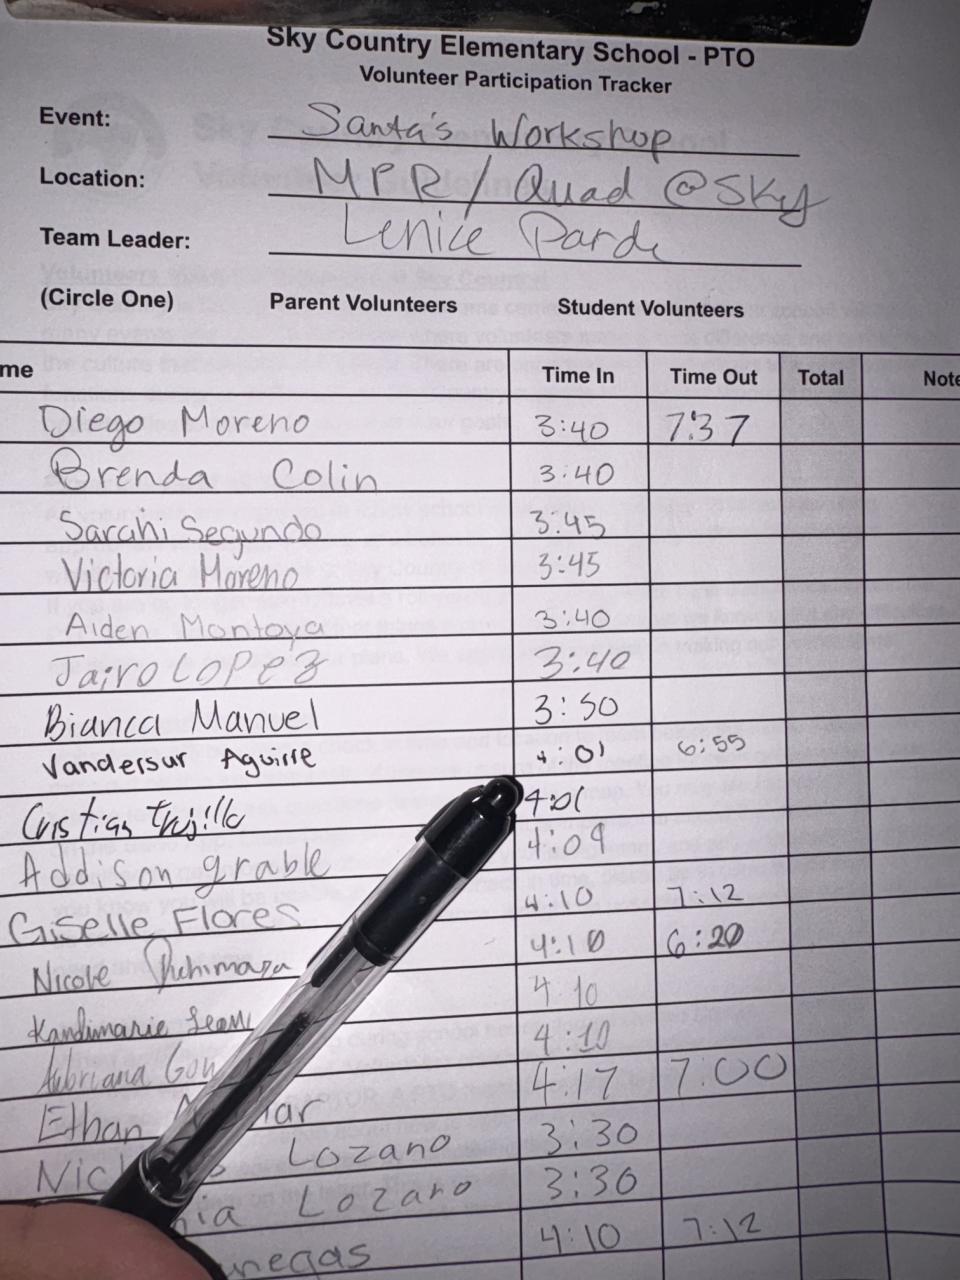 Sky Country Elementary School - PTO
Volunteer Participation Tracker
Event: Santa's Workshop
Location: MPR/Quad @Sky
Team Leader: Lenice
(Circle One) Parent Volunteers Student Volunteers
me Time In Time Out Total Note
Diego Moreno 3:40 7:37
Brenda Colin 3:40
Sarahi Segundo 3:45
Victoria Moreno 3:45
Aiden Montoya 3:40
Jairo LOPEZ 3:40
Bianca Manuel 3:50
Vandersur Aguirre 4:01 6:55
Cristian Trujillo 4:01
Addison grable 4:09
Giselle Flores 4:10 7:12
Nicole 4:10 6:20
Kandimarie 4:10
Aubriana 4:10
Ethan 4:17 7:00
Lozano 3:30
Lozano 3:30
negas 4:10 7:12